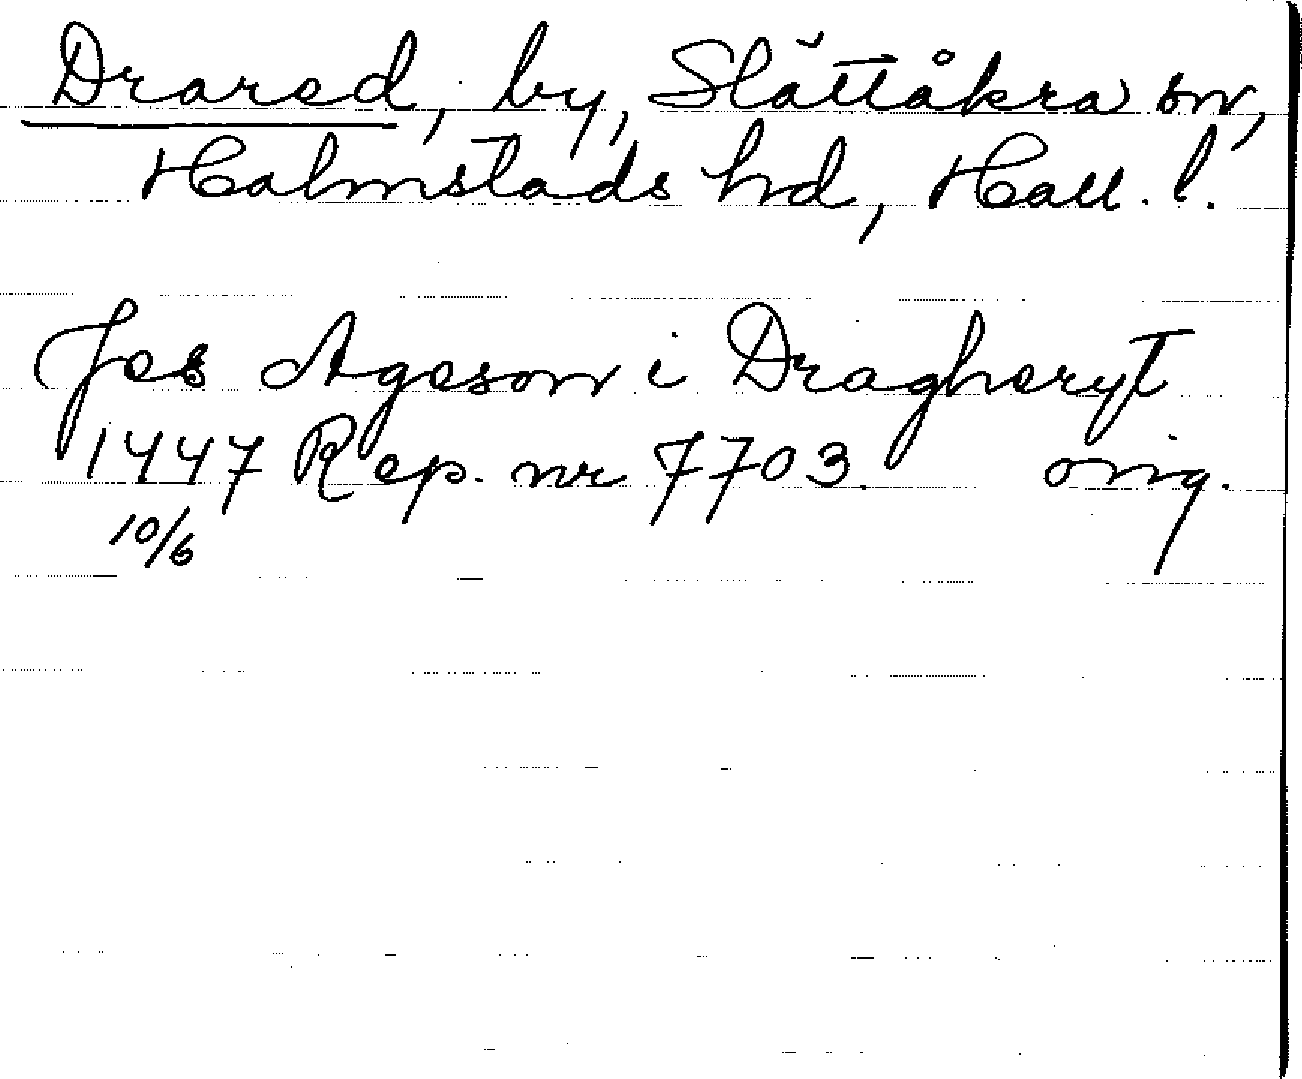 Drared, by, Slättåkra sn,
Halmstads hd, Hall. l.
Jes Ageson i Dragheryt
1447 Rep. nr 7703. orig.
10/6